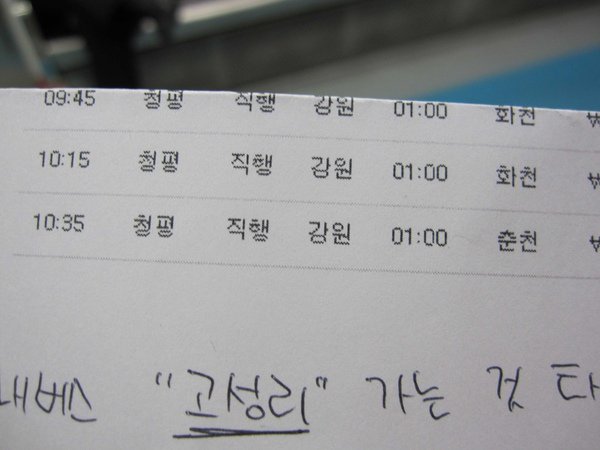 09:45 청평 직행 강원 01:00 화천
10:15 청평 직행 강원 01:00 화천
10:35 청평 직행 강원 01:00 춘천
"고성리" 가는 것 타